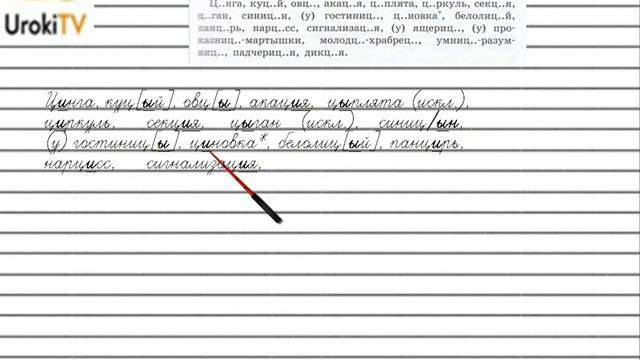 UrokiTV
Ц..нга, куц..й, овц.., акац..я, ц..плята, ц..ркуль, секц..я,
ц..ган, синиц..н, (у) гостиниц.., ц..новка*, белолиц..й,
панц..рь, нарц..сс, сигнализац..я, (у) ящериц.., (у) про-
казниц..-мартышки, молодц..-храбрец.., умниц..-разум-
ниц.., падчериц..н, дикц..я.
Цинга, куц[ый], овц[ы], акация, цыплята (искл.),
циркуль, секция, цыган (искл.), синиц/ын,
(у) гостиниц[ы], циновка*, белолиц[ый], панцирь,
нарцисс, сигнализация,